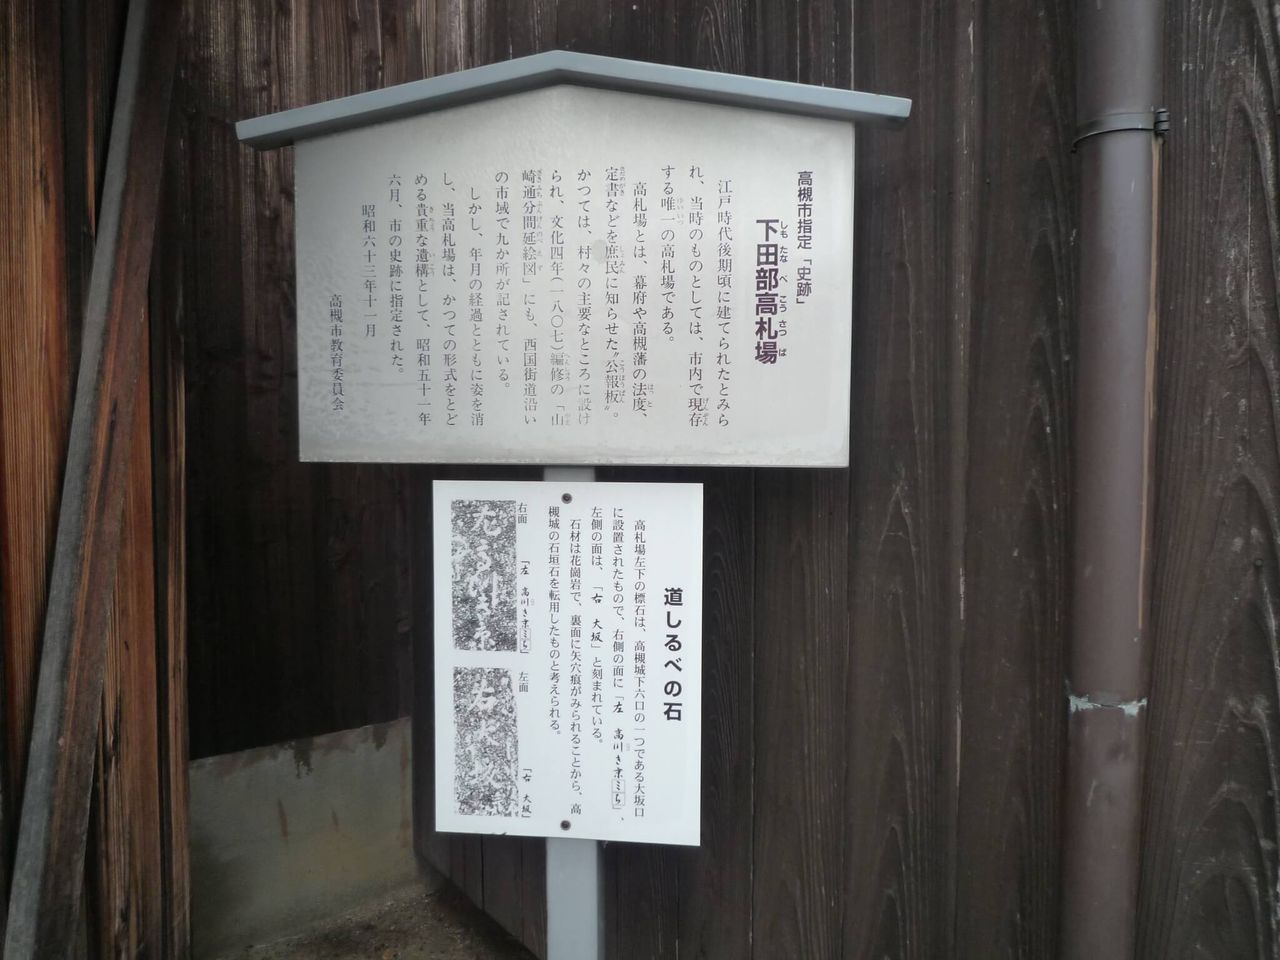 高槻市指定「史跡」
下田部高札場
江戸時代後期頃に建てられたとみら
れ、当時のものとしては、市内で現存
する唯一の高札場である。
高札場とは、幕府や高槻藩の法度、
定書などを庶民に知らせた〝公報板〟。
かつては、村々の主要なところに設け
られ、文化四年(一八〇七)編修の「山
崎通分間延絵図」にも、西国街道沿い
の市域で九か所が記されている。
しかし、年月の経過とともに姿を消
し、当高札場は、かつての形式をとど
める貴重な遺構として、昭和五十一年
六月、市の史跡に指定された。
昭和六十三年十一月
高槻市教育委員会
道しるべの石
高札場左下の標石は、高槻城下六口の一つである大坂口
に設置されたもので、右側の面に「左 高川き京ミち」、
左側の面は、「右 大坂」と刻まれている。
石材は花崗岩で、裏面に矢穴痕がみられることから、高
槻城の石垣石を転用したものと考えられる。
右面
「左 高川き京ミち」
左面
「右 大坂」